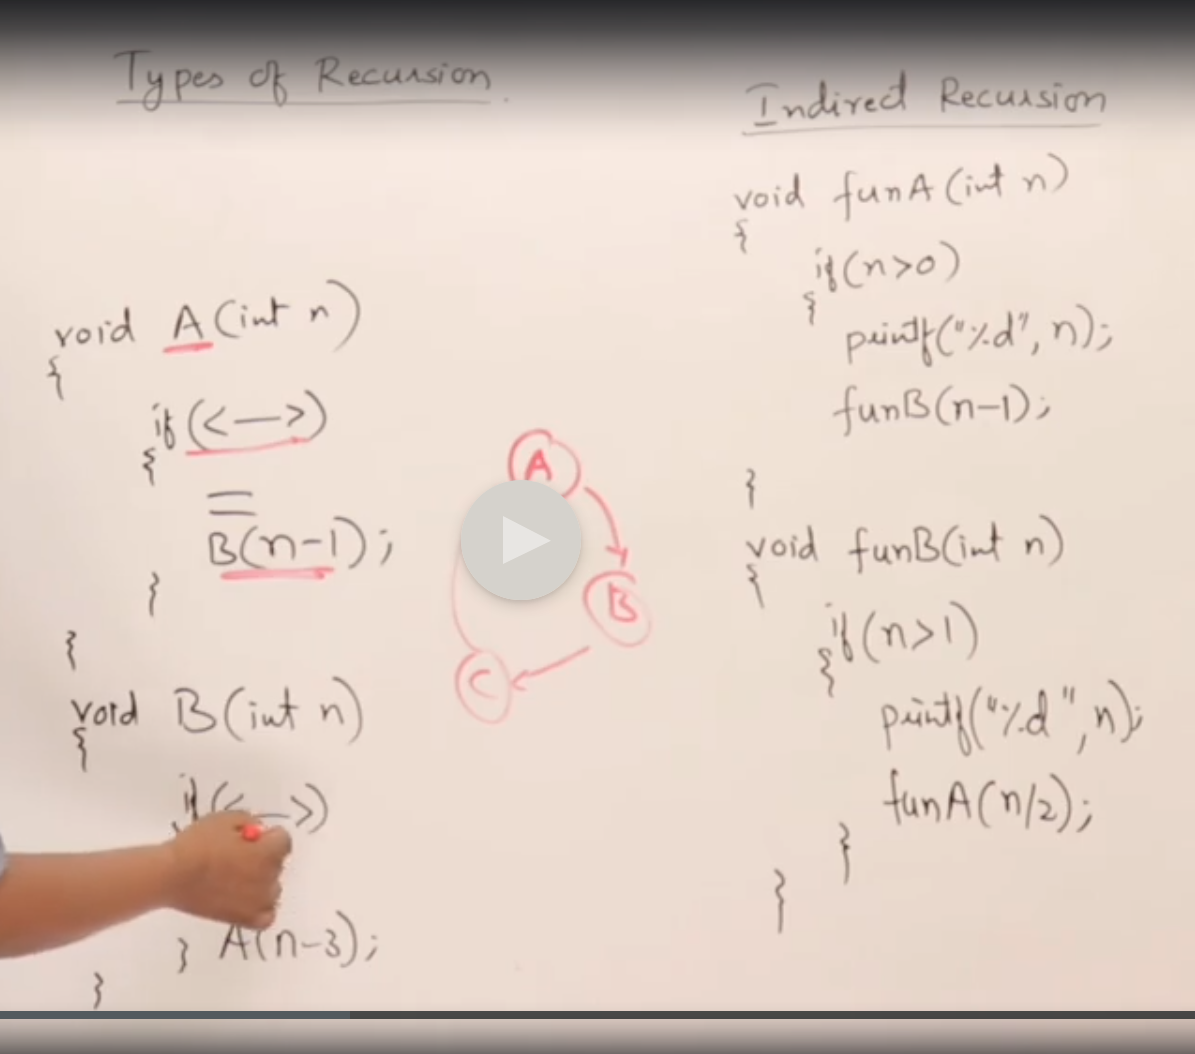 Types of Recursion.
void A(int n)
{
if(<—>)
{
=
B(n-1);
}
}
void B(int n)
{
if(<—>)
} A(n-3);
}
A
B
C
Indirect Recursion
void funA(int n)
{
if(n>0)
{
printf("%d", n);
funB(n-1);
}
void funB(int n)
{
if(n>1)
{
printf("%d", n);
funA(n/2);
}
}